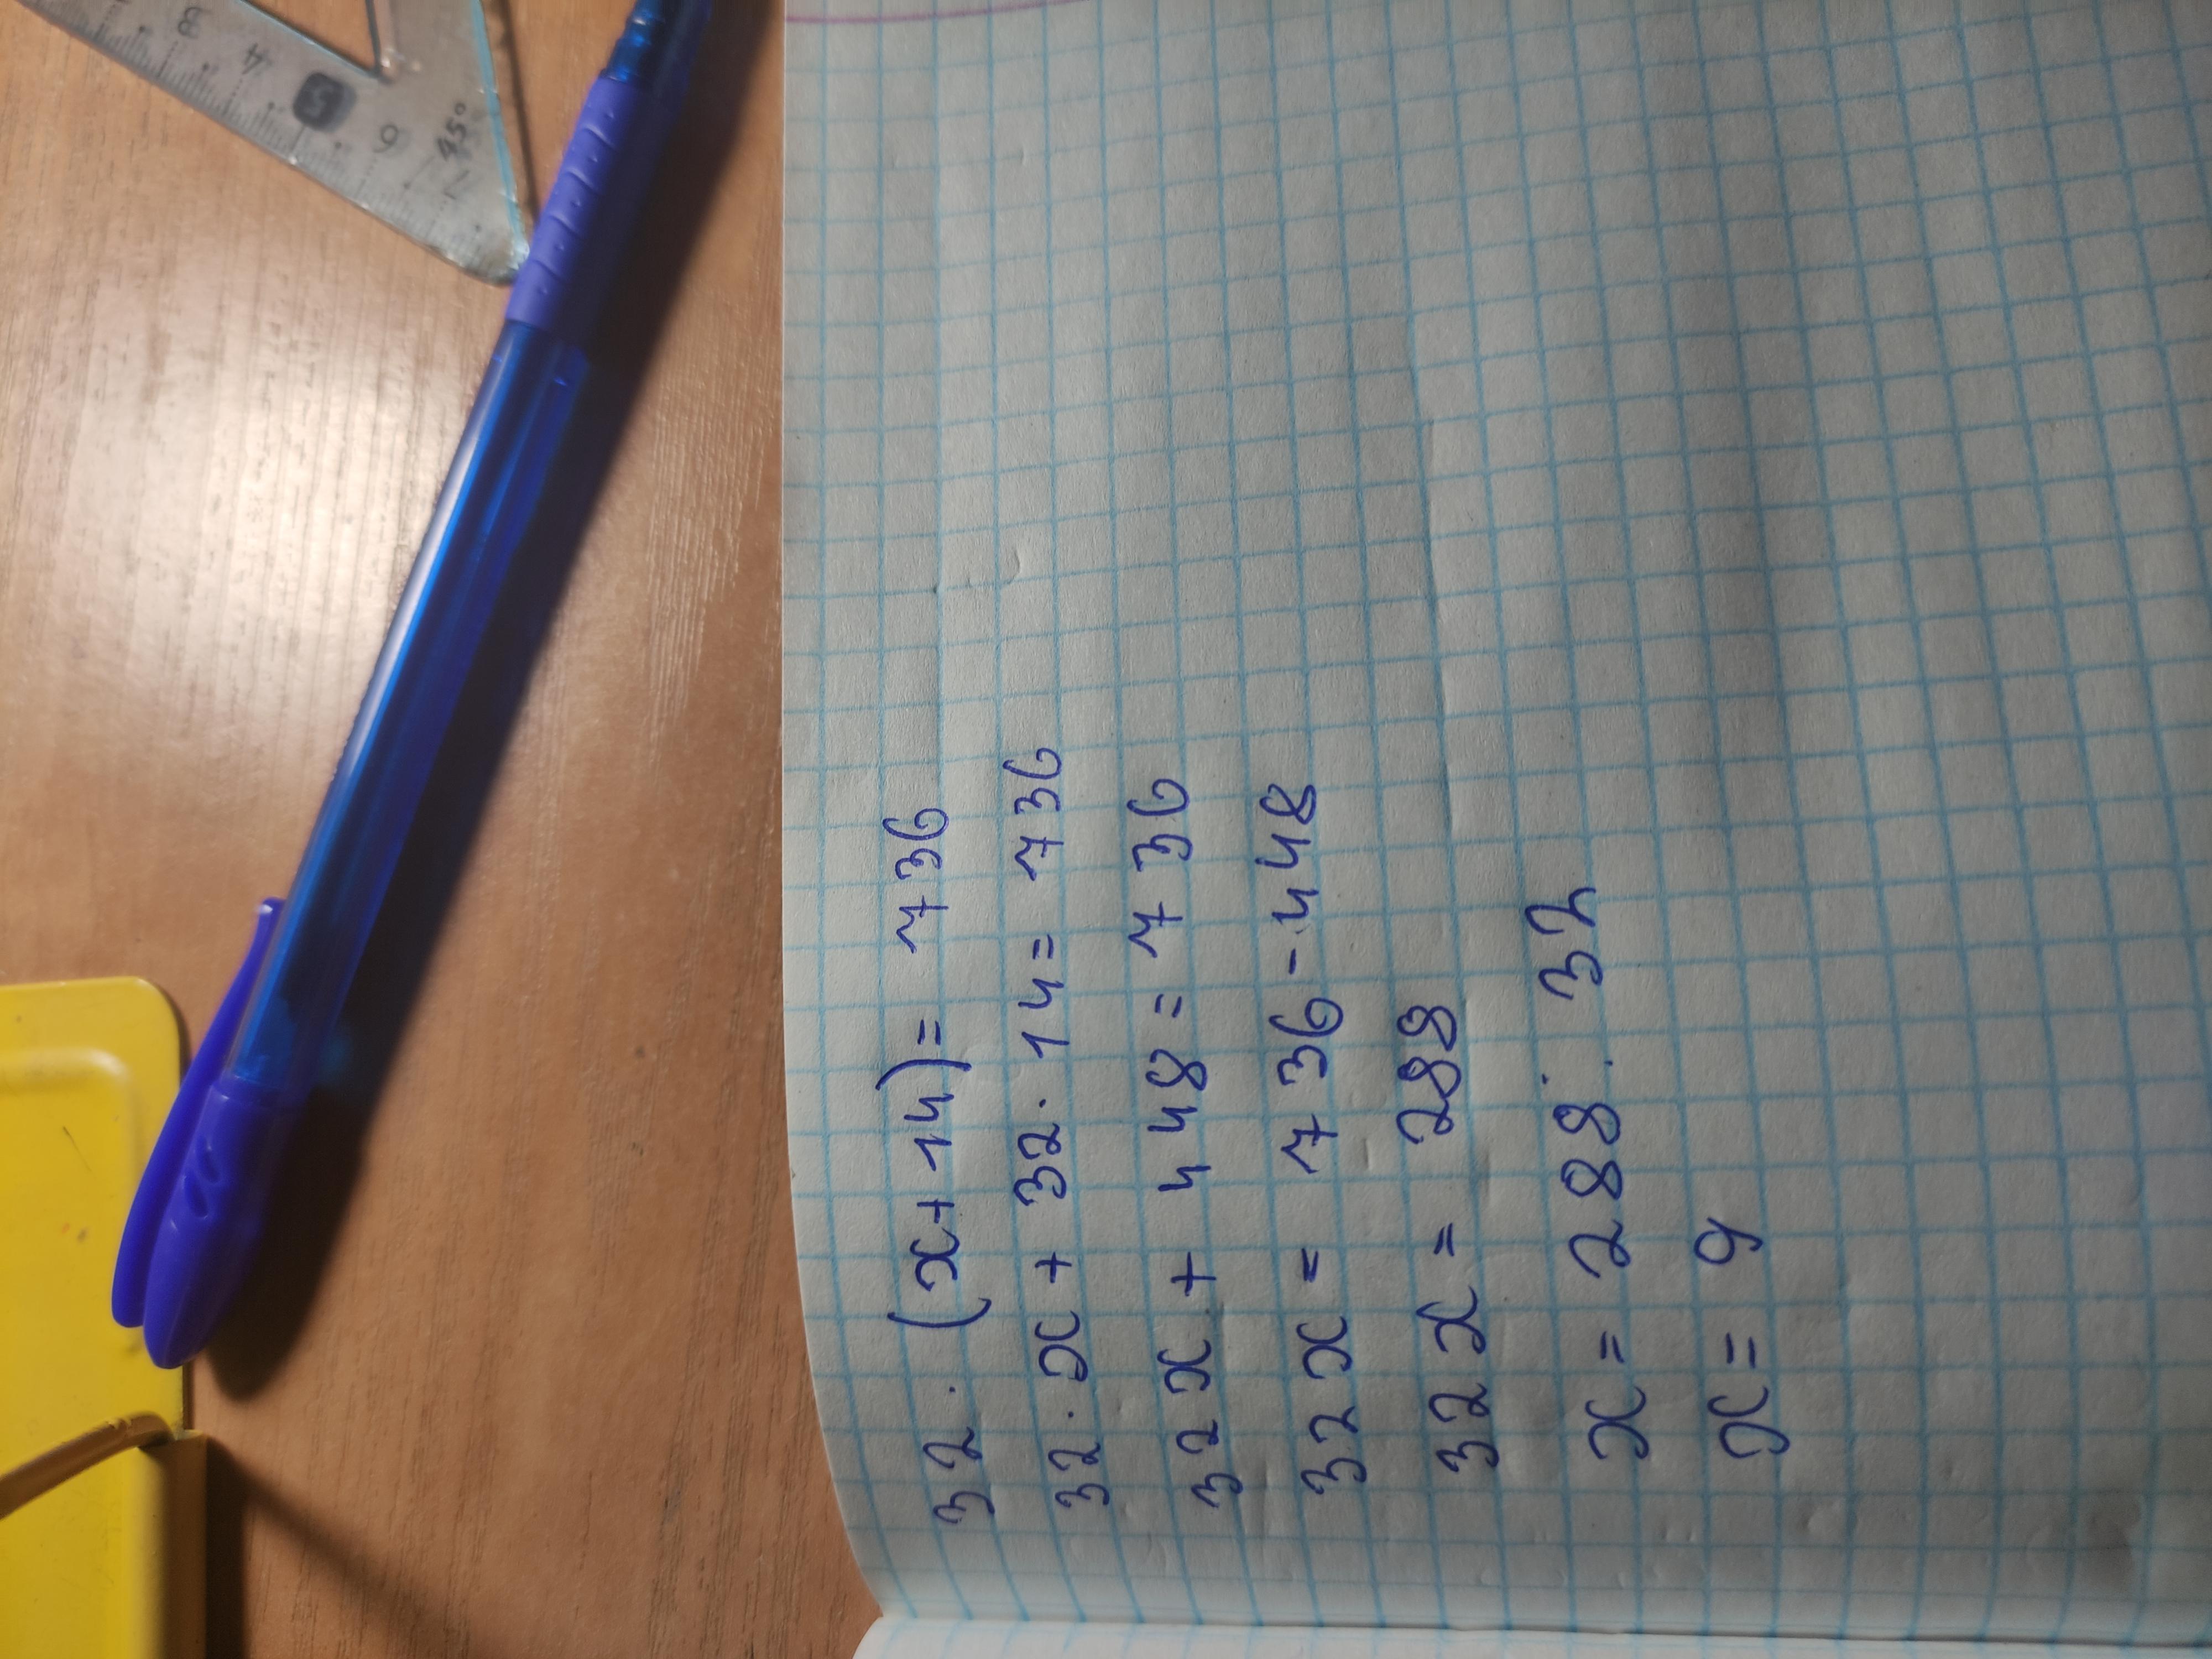 32 · (x+14) = 736
32 · x + 32 · 14 = 736
32x + 448 = 736
32x = 736 - 448
32x = 288
x = 288 : 32
x = 9
3 4 5 6 7
45°